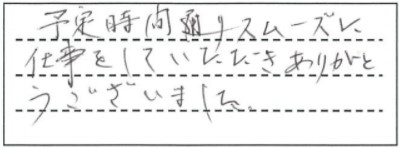 予定時間通りスムーズに
仕事をしていただきありがと
うございました。